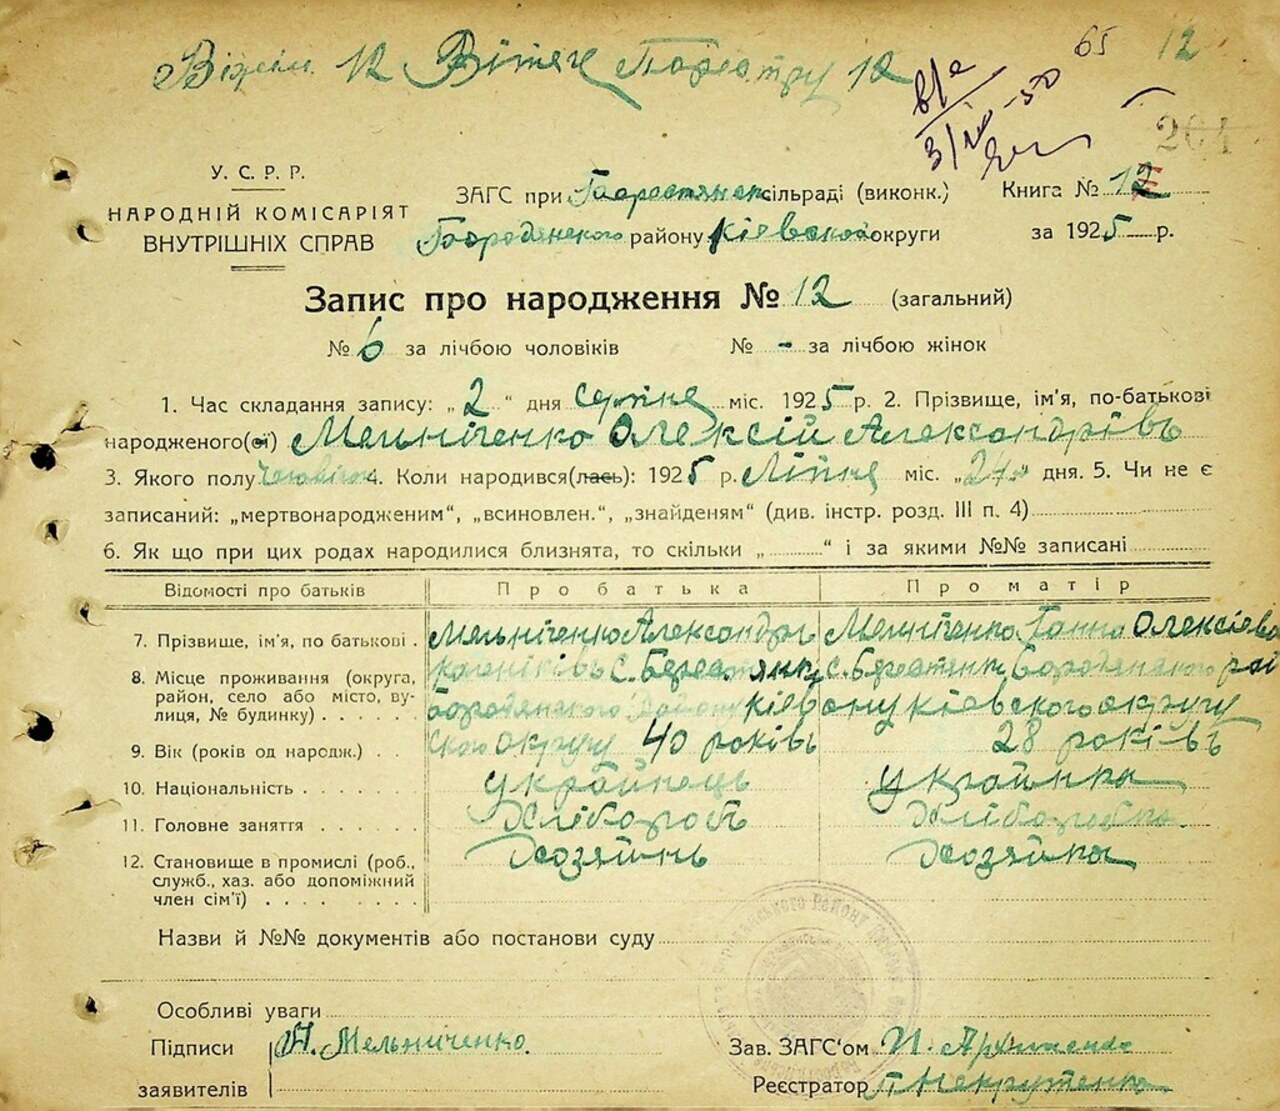 12 12 65 12
в/с
204
У.С.Р.Р.
НАРОДНІЙ КОМІСАРІЯТ
ВНУТРІШНІХ СПРАВ
ЗАГС при сільраді (виконк.) Книга № 12
Бородянского району Кіевской округи за 1925 р.
Запис про народження № 12 (загальний)
№ 6 за лічбою чоловіків № - за лічбою жінок
1. Час складання запису: „ 2 “ дня серпня міс. 1925 р. 2. Прізвище, ім'я, по-батькові
народженого(ої) Мельніченко Олексій Александрівъ
3. Якого полу 4. Коли народився(лась): 1925 р. Ліпня міс. „24“ дня. 5. Чи не є
записаний: „мертвонародженим“, „всиновлен.“, „знайденям“ (див. інстр. розд. III п. 4)
6. Як що при цих родах народилися близнята, то скільки „ “ і за якими №№ записані
Відомості про батьків Про батька Про матір
7. Прізвище, ім'я, по батькові . Мельніченко Александръ Мельніченко Ганна Олексіева
8. Місце проживання (округа, с. Берестянк с. Берстянк Бородянского рай
район, село або місто, ву- Бородянского Району Кіев ону Кіевского округу
лиця, № будинку) . . . . .
9. Вік (років од народж.) . . ского округу 40 роківъ 28 роківъ
10. Національність . . . . . . українець українка
11. Головне заняття . . . . . Хліборобъ Хліборобка
12. Становище в промислі (роб., Хозяйнъ Хозяйка
служб., хаз. або допоміжний
член сім'ї) . . . . . . . .
Назви й №№ документів або постанови суду
Особливі уваги
Підписи А. Мельниченко. Зав. ЗАГС'ом
заявителів Реєстратор П Некрутенко